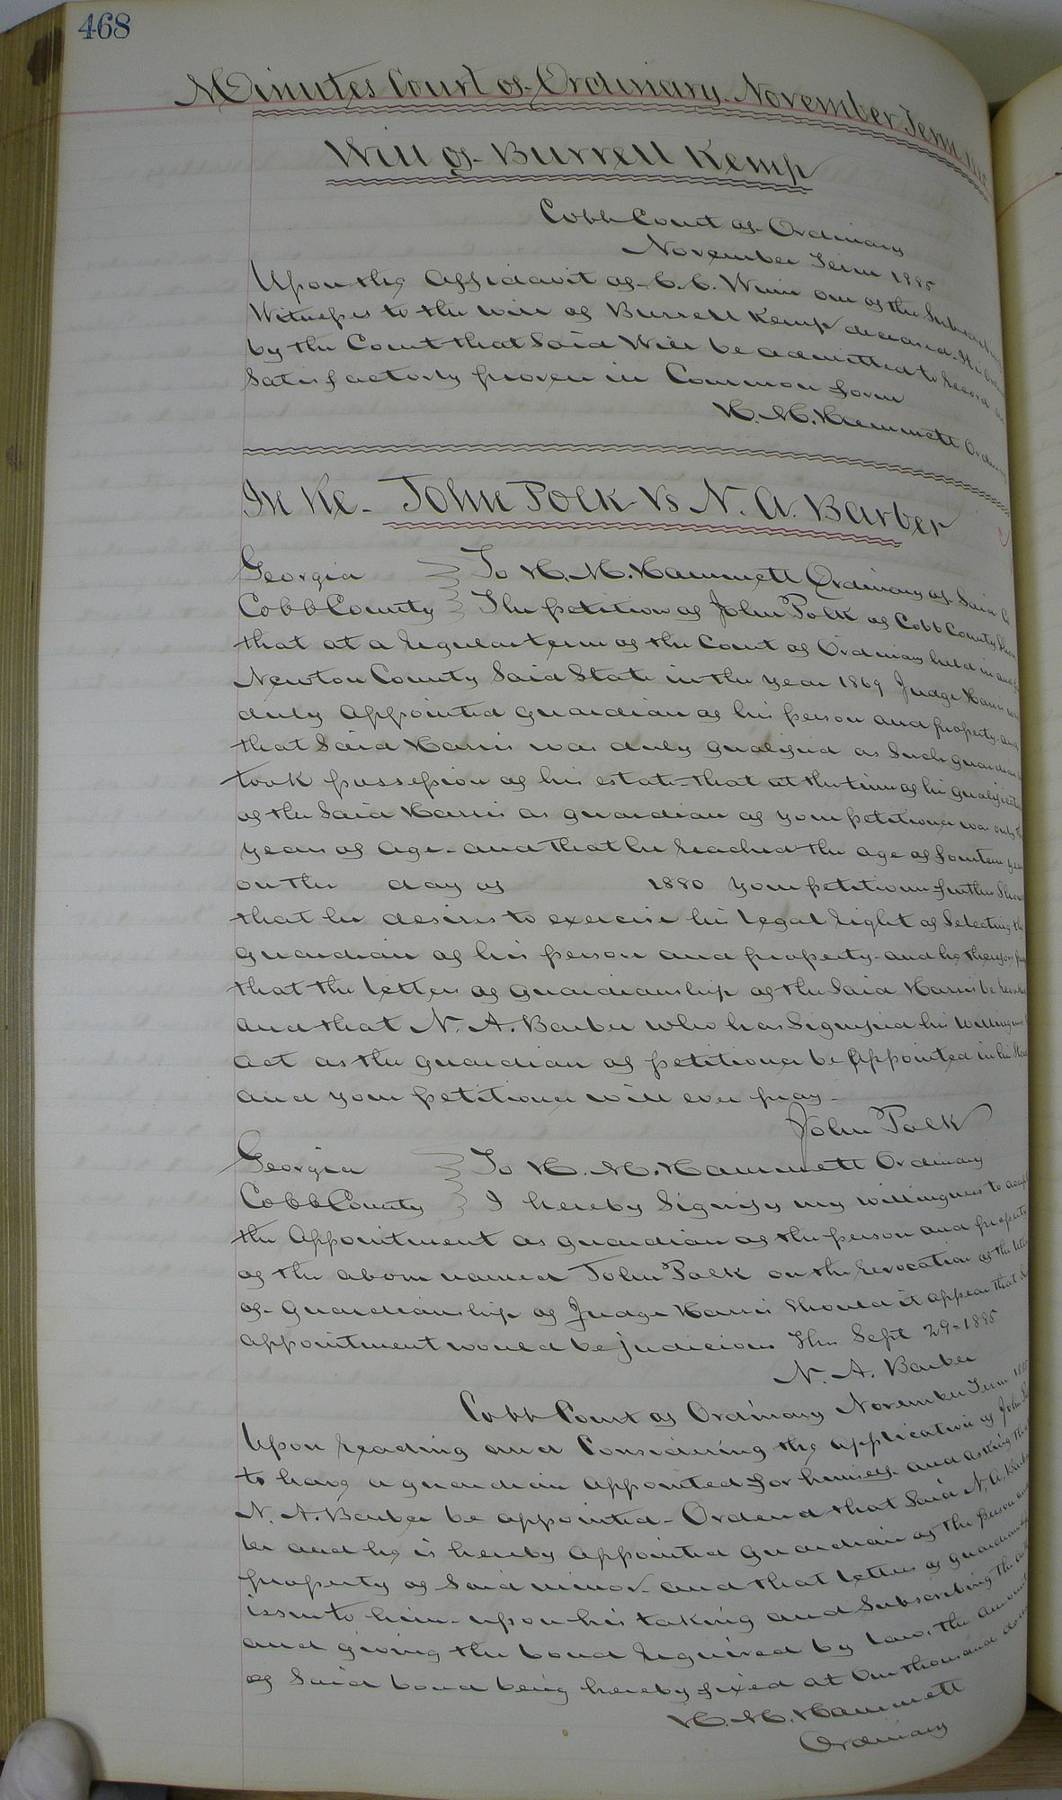 468
Minutes Court of Ordinary November Term
Will of Burrell Kemp
Cobb Court of Ordinary
November Term 1885
Upon the Affidavit of C. C. Winn one of the
Witnesses to the will of Burrell Kemp deceased.
by the Court that Said Will be admitted to Record
Satisfactorily proven in Common form
H. M. Hammett
In Re. John Polk Vs N. A. Barber
Georgia To H. M. Hammett Ordinary of Said Co
Cobb County The petition of John Polk of Cobb County
that at a Regular term of the Court of Ordinary held in and
Newton County Said State in the year 1869 Judge Harris
duly Appointed guardian of his person and property and
that Said Harris was duly qualified as Such guardian
took possession of his estate that at the time of his
of the Said Harris as guardian of your petitioner was only
years of age and that he reached the age of fourteen
on the day of 1880 your petitioner further
that he desires to exercise his Legal Right of Selecting
guardian of his person and property and he therefore
that the Letters of guardianship of the Said Harris be
and that N. A. Barber who has Signified his
act as the guardian of petitioner be Appointed in his
and your petitioner will ever pray
John Polk
Georgia To H. M. Hammett Ordinary
Cobb County I hereby Signify my willingness to
the Appointment as guardian of the person and property
of the above named John Polk on the revocation of the
of guardianship of Judge Harris Should it appear that
appointment would be judicious This Sept 29-1885
N. A. Barber
Cobb Court of Ordinary November Term
Upon reading and Considering the application of John
to have a guardian Appointed for himself and asking that
N. A. Barber be appointed - Ordered that Said N. A.
ber and he is hereby Appointed Guardian of the person
property of Said minor and that letters of
issue to him upon his taking and Subscribing the
and giving the bond Required by Law, the
of Said bond being hereby fixed at One thousand
H. M. Hammett
Ordinary